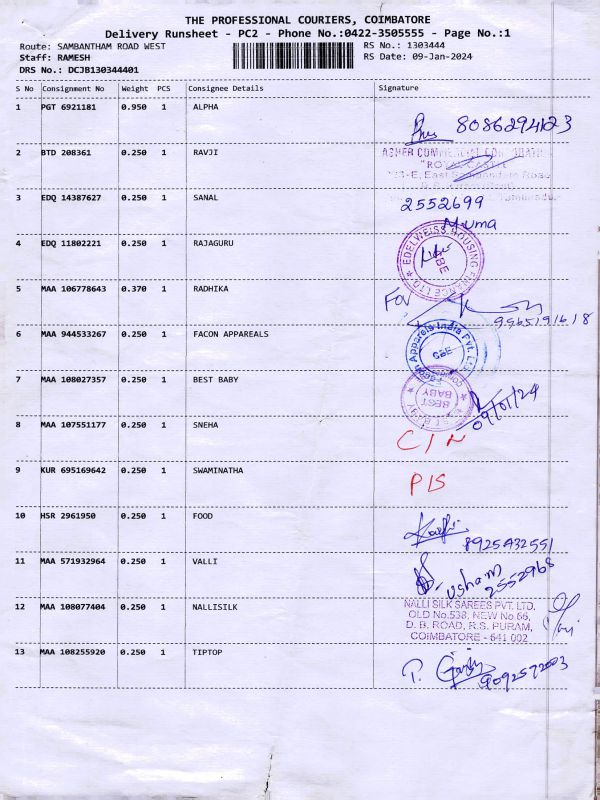 THE PROFESSIONAL COURIERS, COIMBATORE
Delivery Runsheet - PC2 - Phone No.:0422-3505555 - Page No.:1
Route: SAMBANTHAM ROAD WEST RS No.: 1303444
Staff: RAMESH RS Date: 09-Jan-2024
DRS No.: DCJB130344401
S No Consignment No Weight PCS Consignee Details Signature
1 PGT 6921181 0.950 1 ALPHA
8086294123
2 BTD 208361 0.250 1 RAVJI
ASHER COMMERCIAL
"ROYAL CASTLE"
3 EDQ 14387627 0.250 1 SANAL
2552699
4 EDQ 11802221 0.250 1 RAJAGURU
EDELWEISS HOUSING FINANCE LTD.
CBE
5 MAA 106778643 0.370 1 RADHIKA
For
9965191618
6 MAA 944533267 0.250 1 FACON APPAREALS
Facon Apparels India Pvt. Ltd.
CBE
7 MAA 108027357 0.250 1 BEST BABY
BEST BABY
09/01/24
8 MAA 107551177 0.250 1 SNEHA
C/N
9 KUR 695169642 0.250 1 SWAMINATHA
P/S
10 HSR 2961950 0.250 1 FOOD
8925432551
11 MAA 571932964 0.250 1 VALLI
usham
2552968
12 MAA 108077404 0.250 1 NALLISILK
NALLI SILK SAREES PVT. LTD.
OLD No.538, NEW No.66,
D. B. ROAD, R.S. PURAM,
COIMBATORE - 641 002
13 MAA 108255920 0.250 1 TIPTOP
9092572003